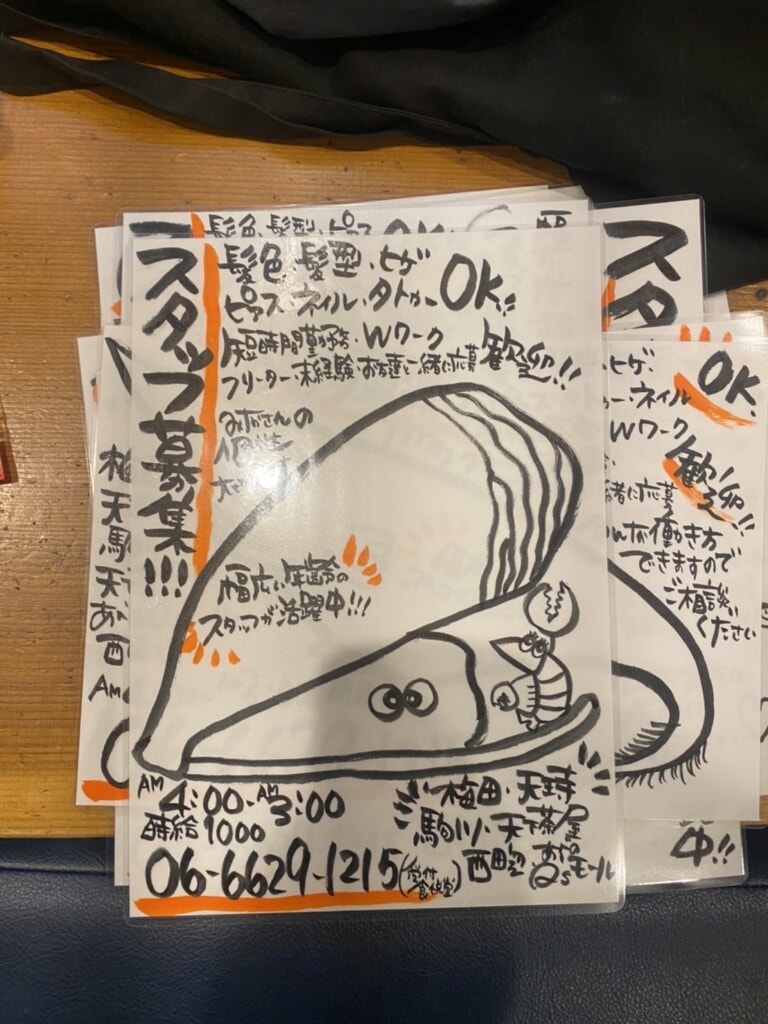 スタッフ募集!!!
髪色、髪型・ヒゲ
ピアス・ネイル・タトゥー OK!!
短時間勤務・Wワーク
フリーター・未経験・お友達と一緒に応募 歓迎!!
みなさんの
幅広い年齢の
スタッフが活躍中!!!
AM4:00-AM3:00
時給1000
06-6629-1215(受付
食伙堂)
梅田・天珠
駒川・天下茶屋
西田辺 あべの
Q'sモール
髪色、髪型・ピアス OK
幅
スタ
ヒゲ、
ネイル
OK,
Wワーク
緒に応募
歓迎!!
働き方
できますので
ご相談
ください
中!!
梅
天
駒
天
あ
西
AM